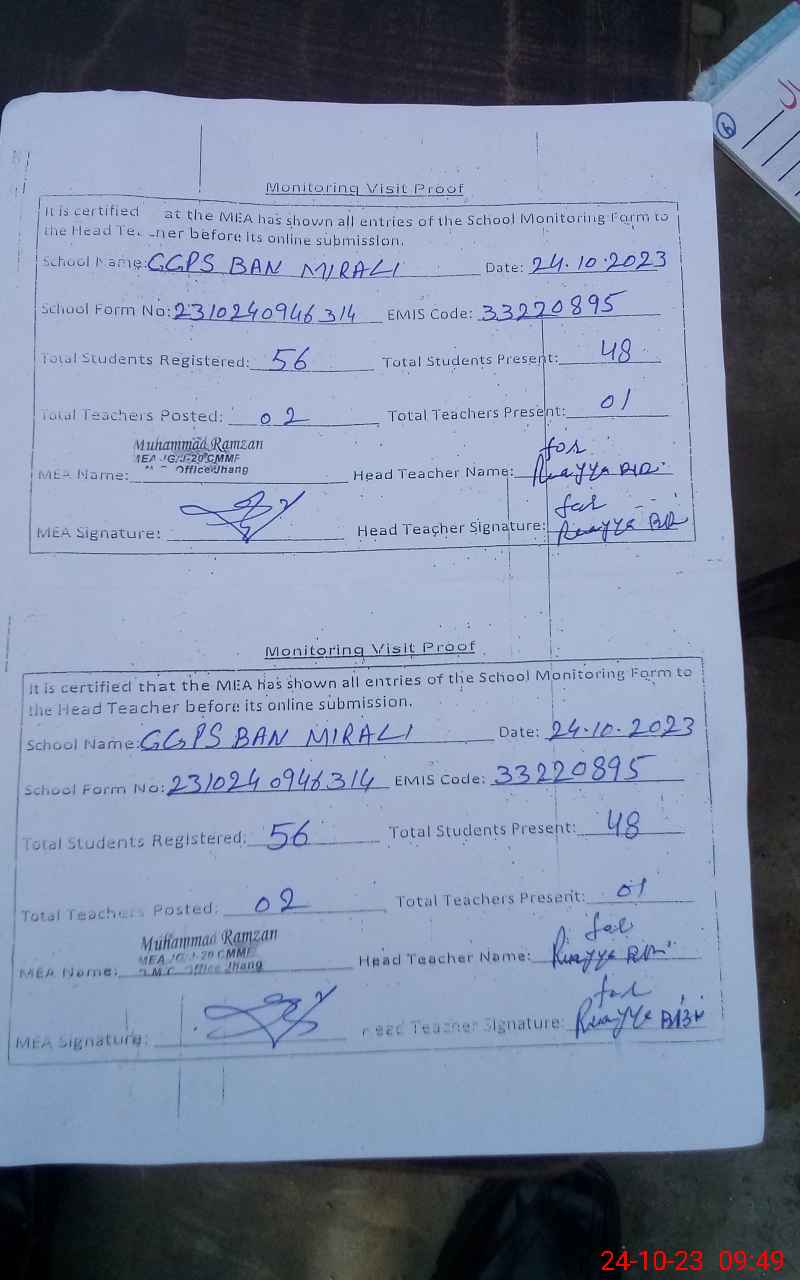 Monitoring Visit Proof
It is certified at the MEA has shown all entries of the School Monitoring Form to
the Head before its online submission.
School Name: GGPS BAN MIRALI Date: 24.10.2023
School Form No: 2310240946314 EMIS Code: 33220895
Total Students Registered: 56 Total Students Present: 48
Total Teachers Posted: 02 Total Teachers Present: 01
Muhammad Ramzan
MEA CMMF
Office Jhang
MEA Name: Head Teacher Name: for
MEA Signature: Head Teacher Signature: for
Monitoring Visit Proof
It is certified that the MEA has shown all entries of the School Monitoring Form to
the Head Teacher before its online submission.
School Name: GGPS BAN MIRALI Date: 24.10.2023
School Form No: 2310240946314 EMIS Code: 33220895
Total Students Registered: 56 Total Students Present: 48
Total Teachers Posted: 02 Total Teachers Present: 01
Muhammad Ramzan
MEA CMMF
Office Jhang
MEA Name: Head Teacher Name: for
MEA Signature: Head Teacher Signature: for
24-10-23 09:49